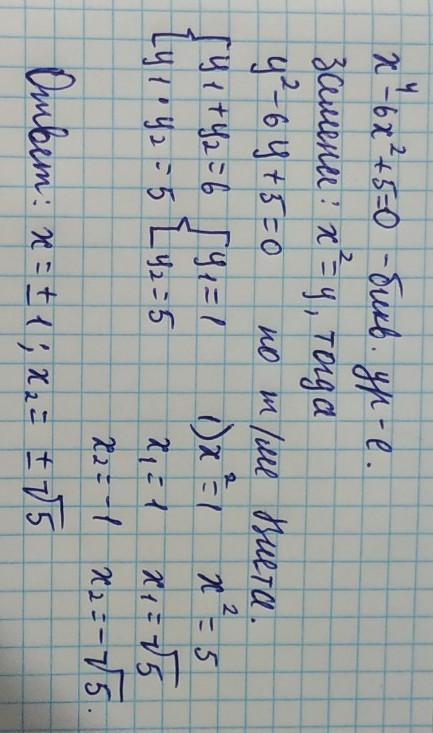 x⁴-6x²+5=0 - бикв. ур-е.
Замена: x²=y, тогда
y²-6y+5=0 по т/ме Виета.
{y1+y2=6 {y1=1 1) x²=1 x²=5
{y1·y2=5 {y2=5 x1=1 x1=√5
x2=-1 x2=-√5.
Ответ: x=±1; x2=±√5